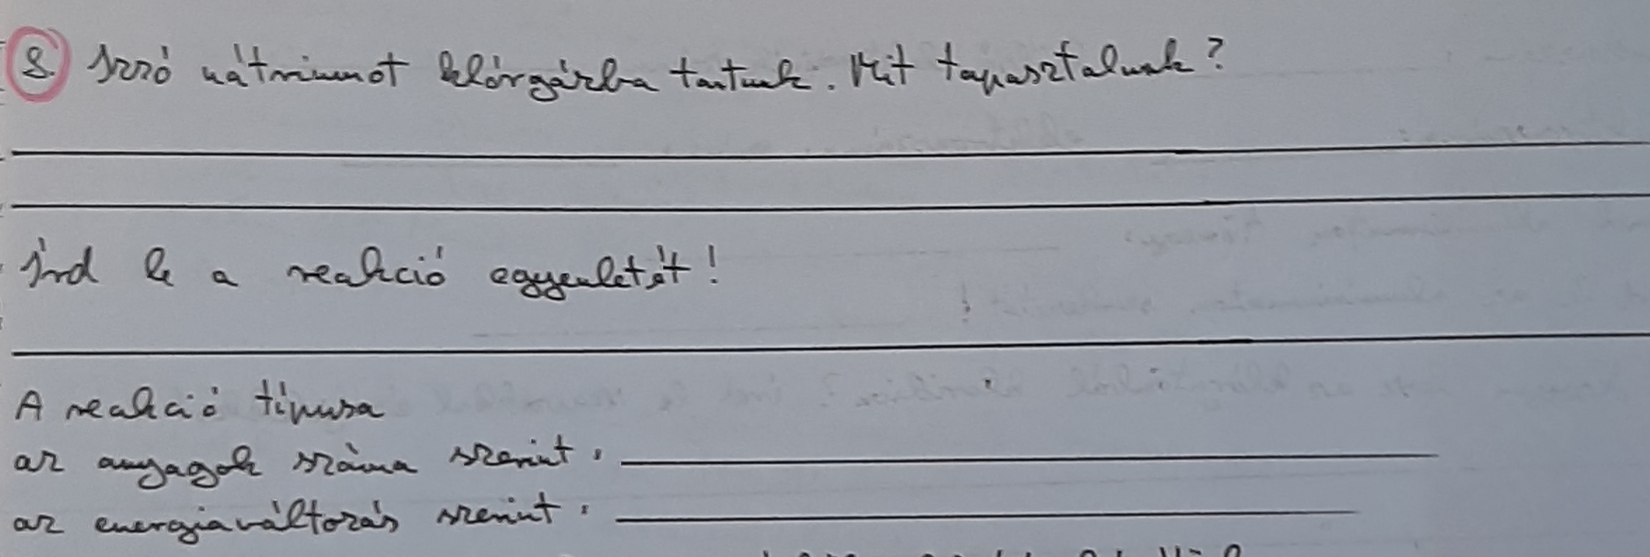 8. Izzó nátriumot klórgázba tartunk. Mit tapasztalunk?
Írd le a reakció egyenletét!
A reakció típusa
az anyagok száma szerint:
az energiaváltozás szerint: